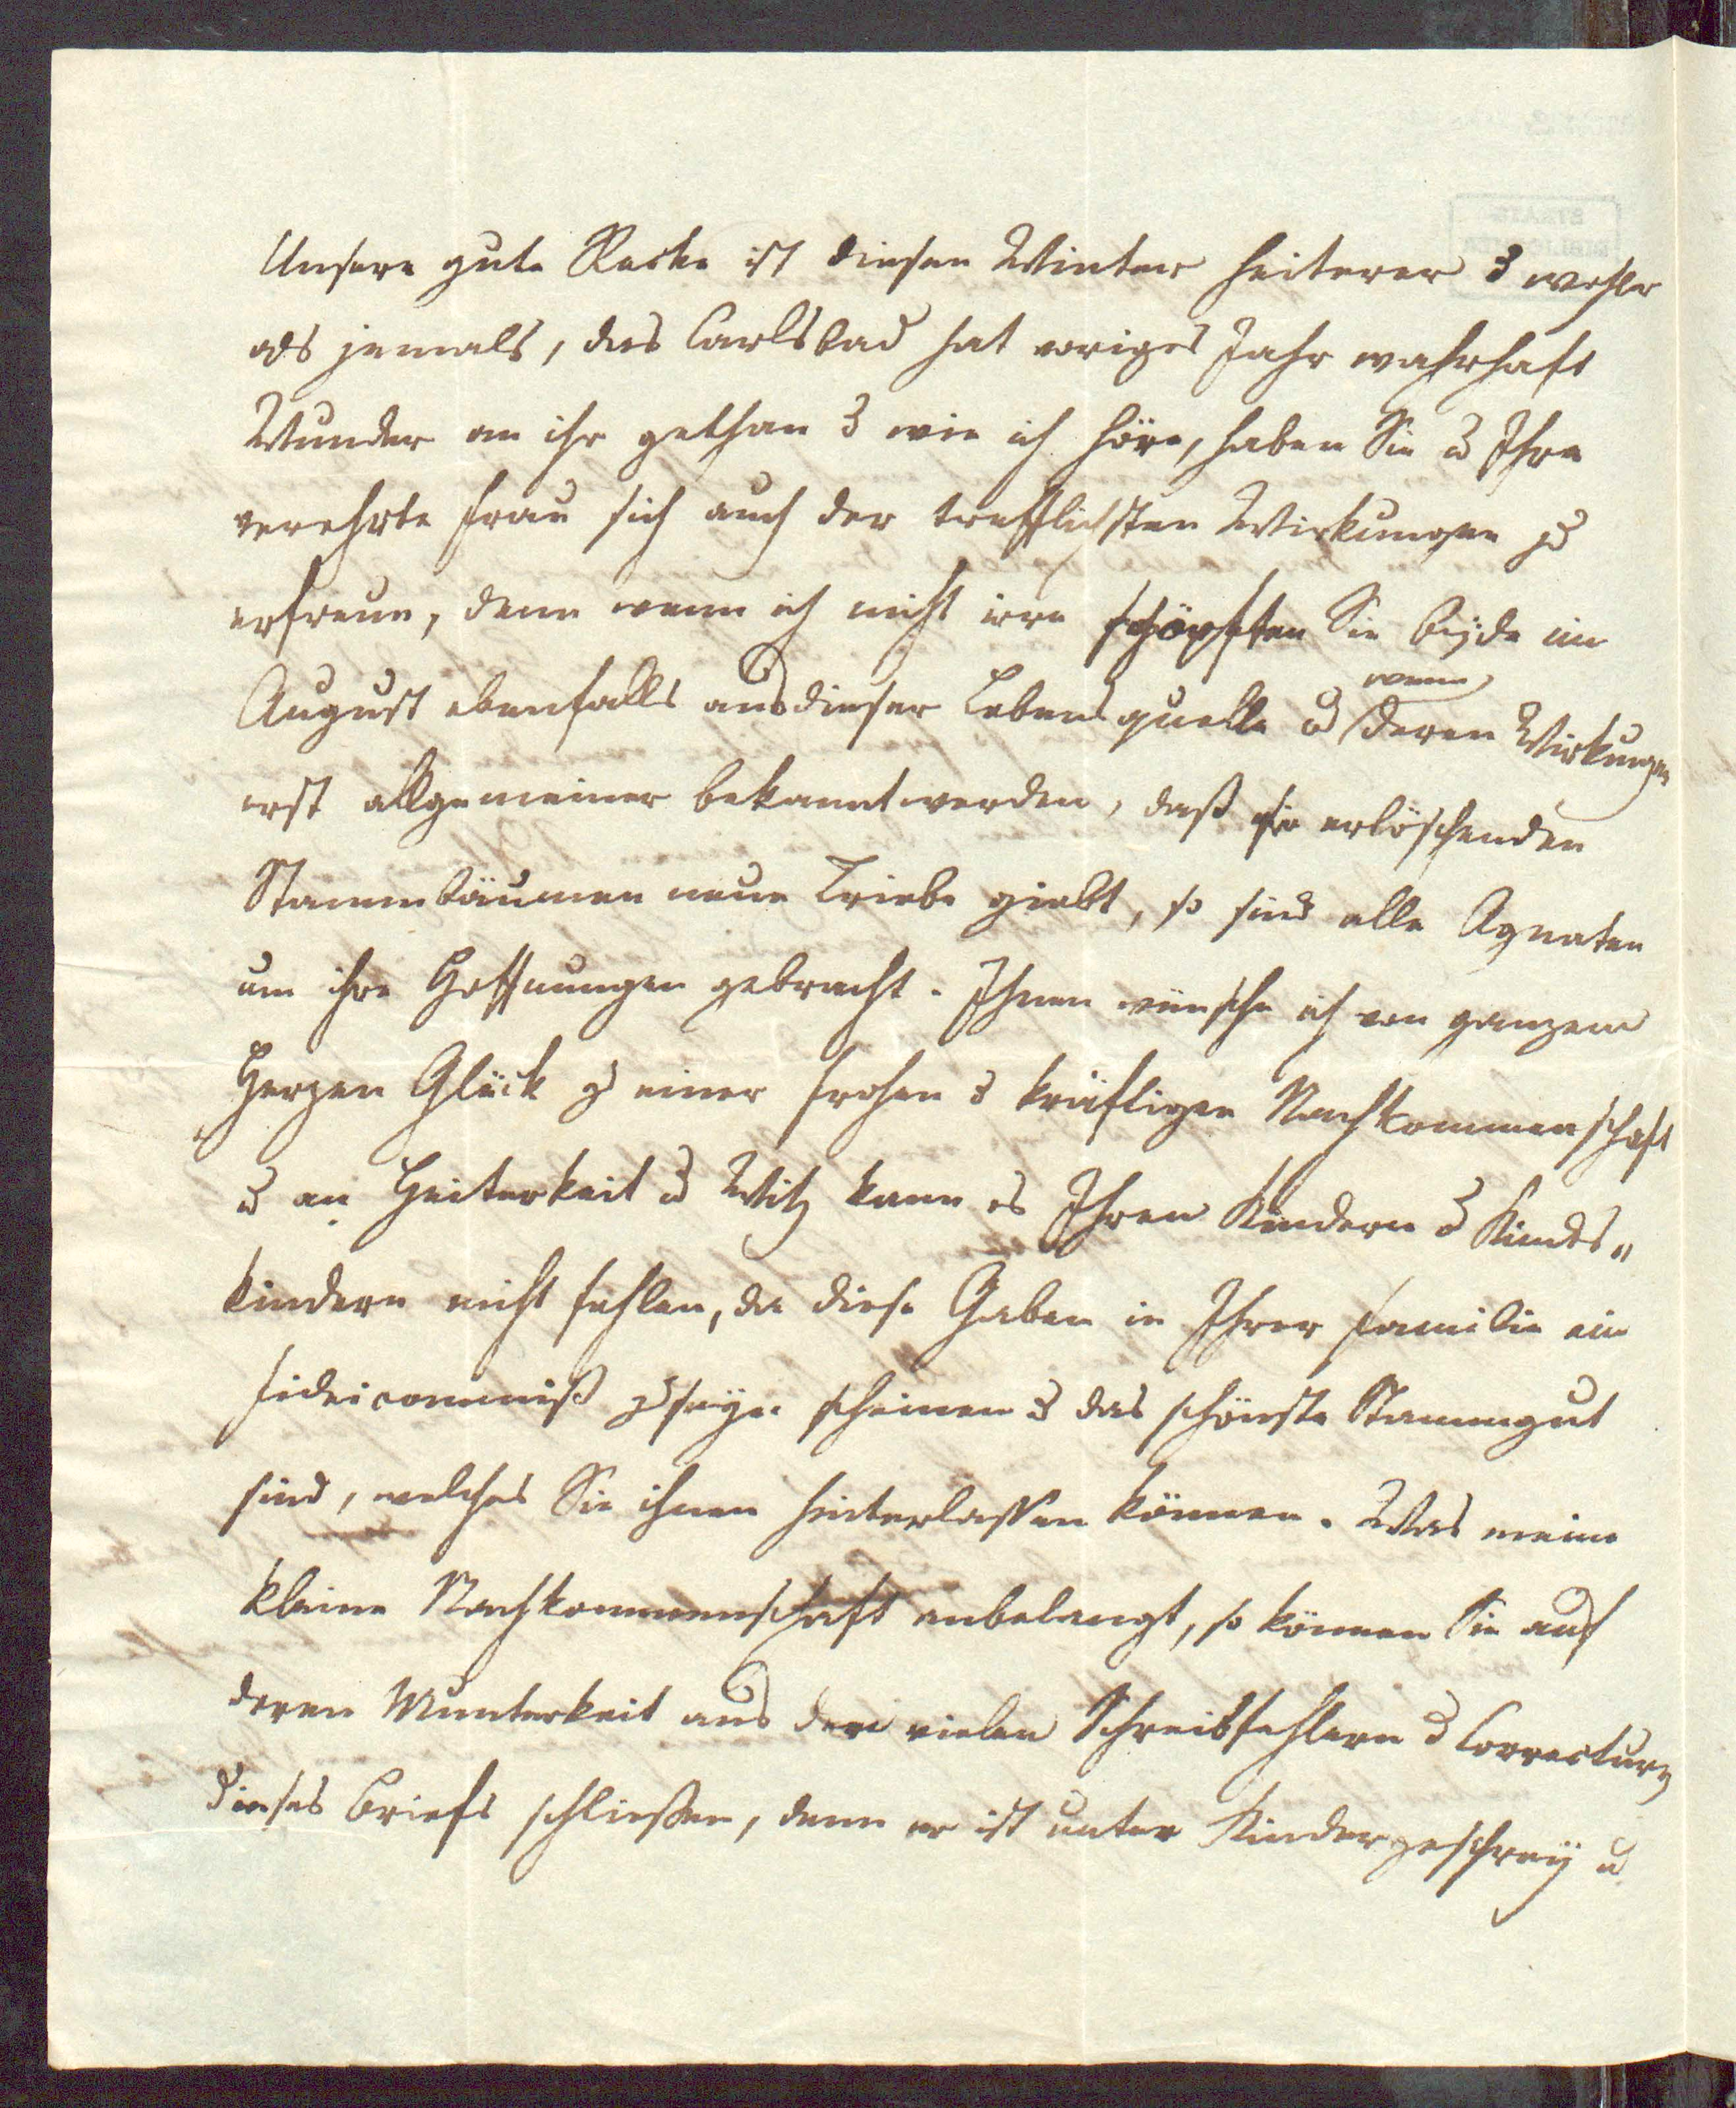 Unsere gute Recke ist diesen Winter heiterer u wohler
als jemals, das Carlsbad hat voriges Jahr wahrhaft
Wunder an ihr gethan u wie ich höre, haben Sie u Ihre
verehrte Frau sich auch der trefflichsten Wirkungen zu
erfreun, denn wenn ich nicht irre schöpften Sie beÿde im
August ebenfalls aus dieser Lebensquelle u
wenn
deren Wirkungen
erst allgemeiner bekannt werden, daß sie erlöschenden
Stammbäumen neue Triebe giebt, so sind alle Agnaten
um ihre Hoffnungen gebracht. Ihnen wünsche ich von ganzem
Herzen Glück zu einer frohen u kräftigen Nachkommenschaft
u an Heiterkeit u Witz kann es Ihren Kindern u Kindes„
kindern nicht fehlen, da diese Gaben in Ihrer Familie ein
Fideicommiß zu seÿn scheinen u das schönste Stammgut
sind, welches Sie ihnen hinterlassen können. Was meine
kleine Nachkommenschaft anbelangt, so können Sie auf
deren Munterkeit aus den vielen Schreibfehlern u Correcturen
dieses Briefs schließen, denn er ist unter Kindergeschreÿ u